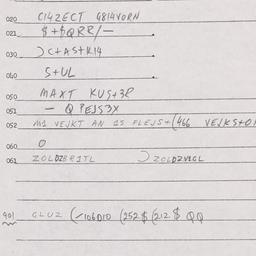 020 C14ZECT G814VORN
021 $+$QRR/—
030 )C+A5+K14
040 S+UL
050 MAXT KUS+3R
051 — QPEJS3X
052 M1 VEJKT AN 1S FLEJS+(466 VEJKS+O
060 O
061 ZOLDZBR1TL )ZOLDZVLGL
901 GLUZ (/106D10 (252$(212$ QQ